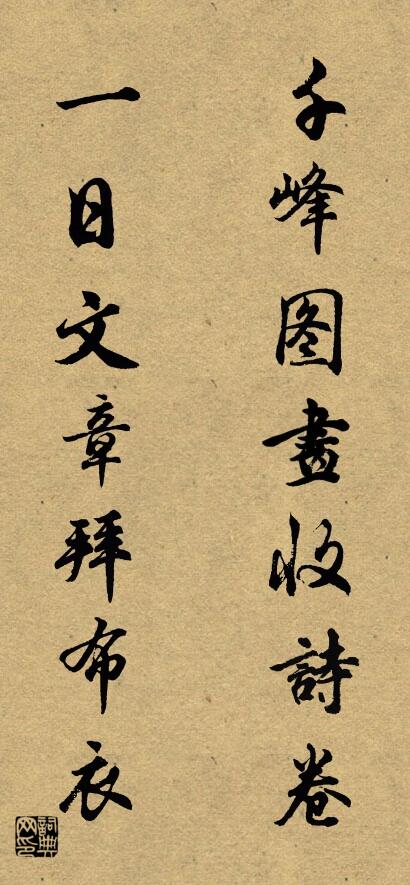 千峰图畫收詩卷
一日文章拜布衣
詞典网印